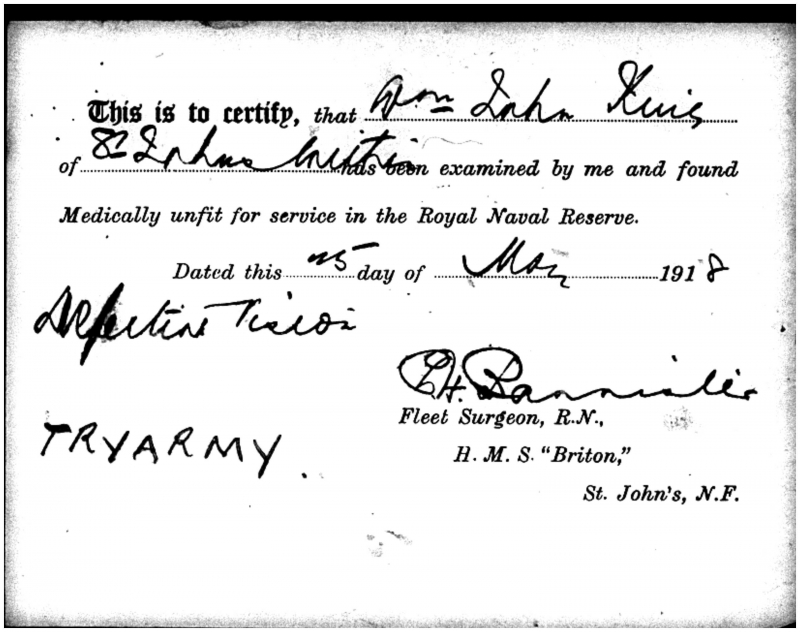 This is to certify, that Wm John King
of St Johns has been examined by me and found
Medically unfit for service in the Royal Naval Reserve.
Dated this 25 day of May 1918
Defective Vision
Bannister
Fleet Surgeon, R.N.,
TRY ARMY.
H. M. S. "Briton,"
St. John's, N.F.